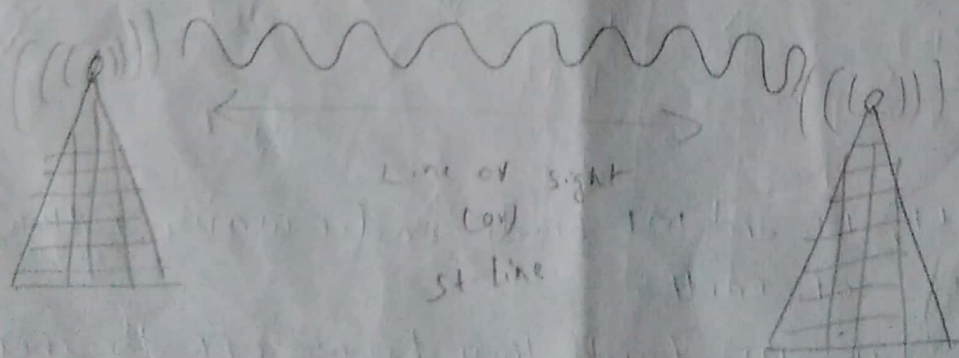 Line of sight
(or)
st line